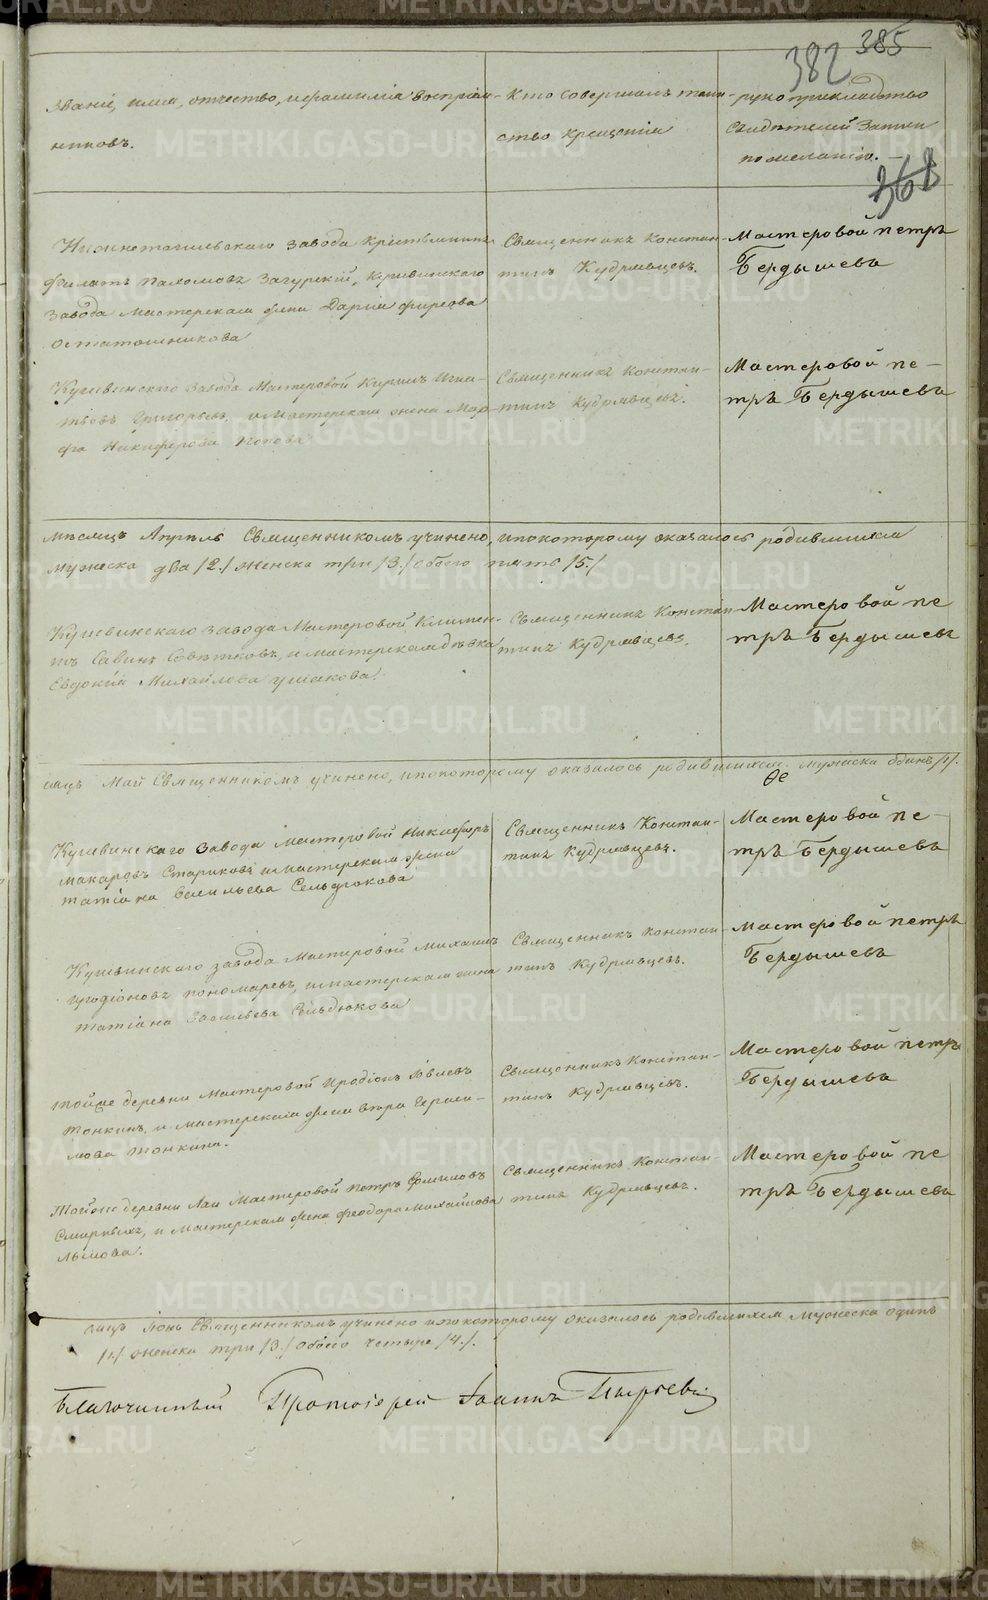 385
382
368
Званіе, имя, отчество, и фамилія воспріем-
никовъ.
Кто совершалъ таин-
ство крещенія
рукоприкладство
свидѣтелей записи
по желанію.
Нижнетагильскаго завода крестьянинъ
Филатъ Пахомовъ Загурскій, Кушвинскаго
завода мастерская жена Дарія Фирсова
Священникъ Констан-
тинъ Кудрявцевъ.
Мастеровой петръ
Бердышевъ
Кушвинскаго завода Мастеровой Кирилъ Игна-
тьевъ Григорьевъ, и мастерская жена Мар-
фа Никифорова Попова
Священникъ Констан-
тинъ Кудрявцевъ.
Мастеровой пе-
тръ Бердышевъ
мѣсяцъ Апрѣль Священникомъ учинено, и по которому оказалось родившихся
мужеска два /2./ женска три /3./ обоего пять /5./
Кушвинскаго завода Мастеровой Климен-
тъ Савинъ и мастерская дѣвка
Евдокія Михайлова Ушакова.
Священникъ Констан-
тинъ Кудрявцевъ.
Мастеровой пе
тръ Бердышевъ
сяцъ Май Священникомъ учинено, и по которому оказалось родившихся мужеска одинъ /1/.
Кушвинскаго завода мастеровой Никифоръ
Макаровъ Стариковъ и мастерская жена
Татіана Васильева Сельдюкова
Священникъ Констан-
тинъ Кудрявцевъ.
Мастеровой пе-
тръ Бердышевъ
Кушвинскаго завода Мастеровой Михаилъ
Иродіоновъ Пономаревъ, и мастерская жена
Татіана Васильева Сельдюкова
Священникъ Констан-
тинъ Кудрявцевъ.
Мастеровой петръ
Бердышевъ
тойже деревни Мастеровой Иродіонъ Іовлевъ
Тонкинъ, и мастерская жена Вѣра Гераси-
мова Тонкина.
Священникъ Констан-
тинъ Кудрявцевъ.
Мастеровой петръ
Бердышевъ
Тойже деревни Лаи Мастеровой петръ
и мастерская жена Феодора Михайлова
Священникъ Констан-
тинъ Кудрявцевъ.
Мастеровой пе
тръ Бердышевъ
сяцъ Іюнь Священникомъ учинено и по которому оказалось родившихся мужеска одинъ
/1./ женска три /3./ обоего четыре /4./.
Благочинный Протоіерей Іоаннъ
METRIKI.GASO-URAL.RU